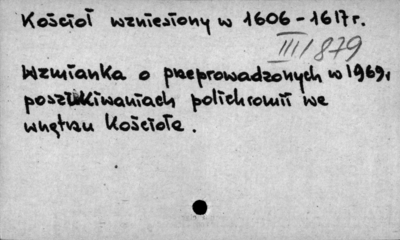 Kościoł wzniesiony w 1606-1617r.
III/879
Wzmianka o przeprowadzonych w 1969r
poszukiwaniach polichromii we
wnętrzu Kościoła.